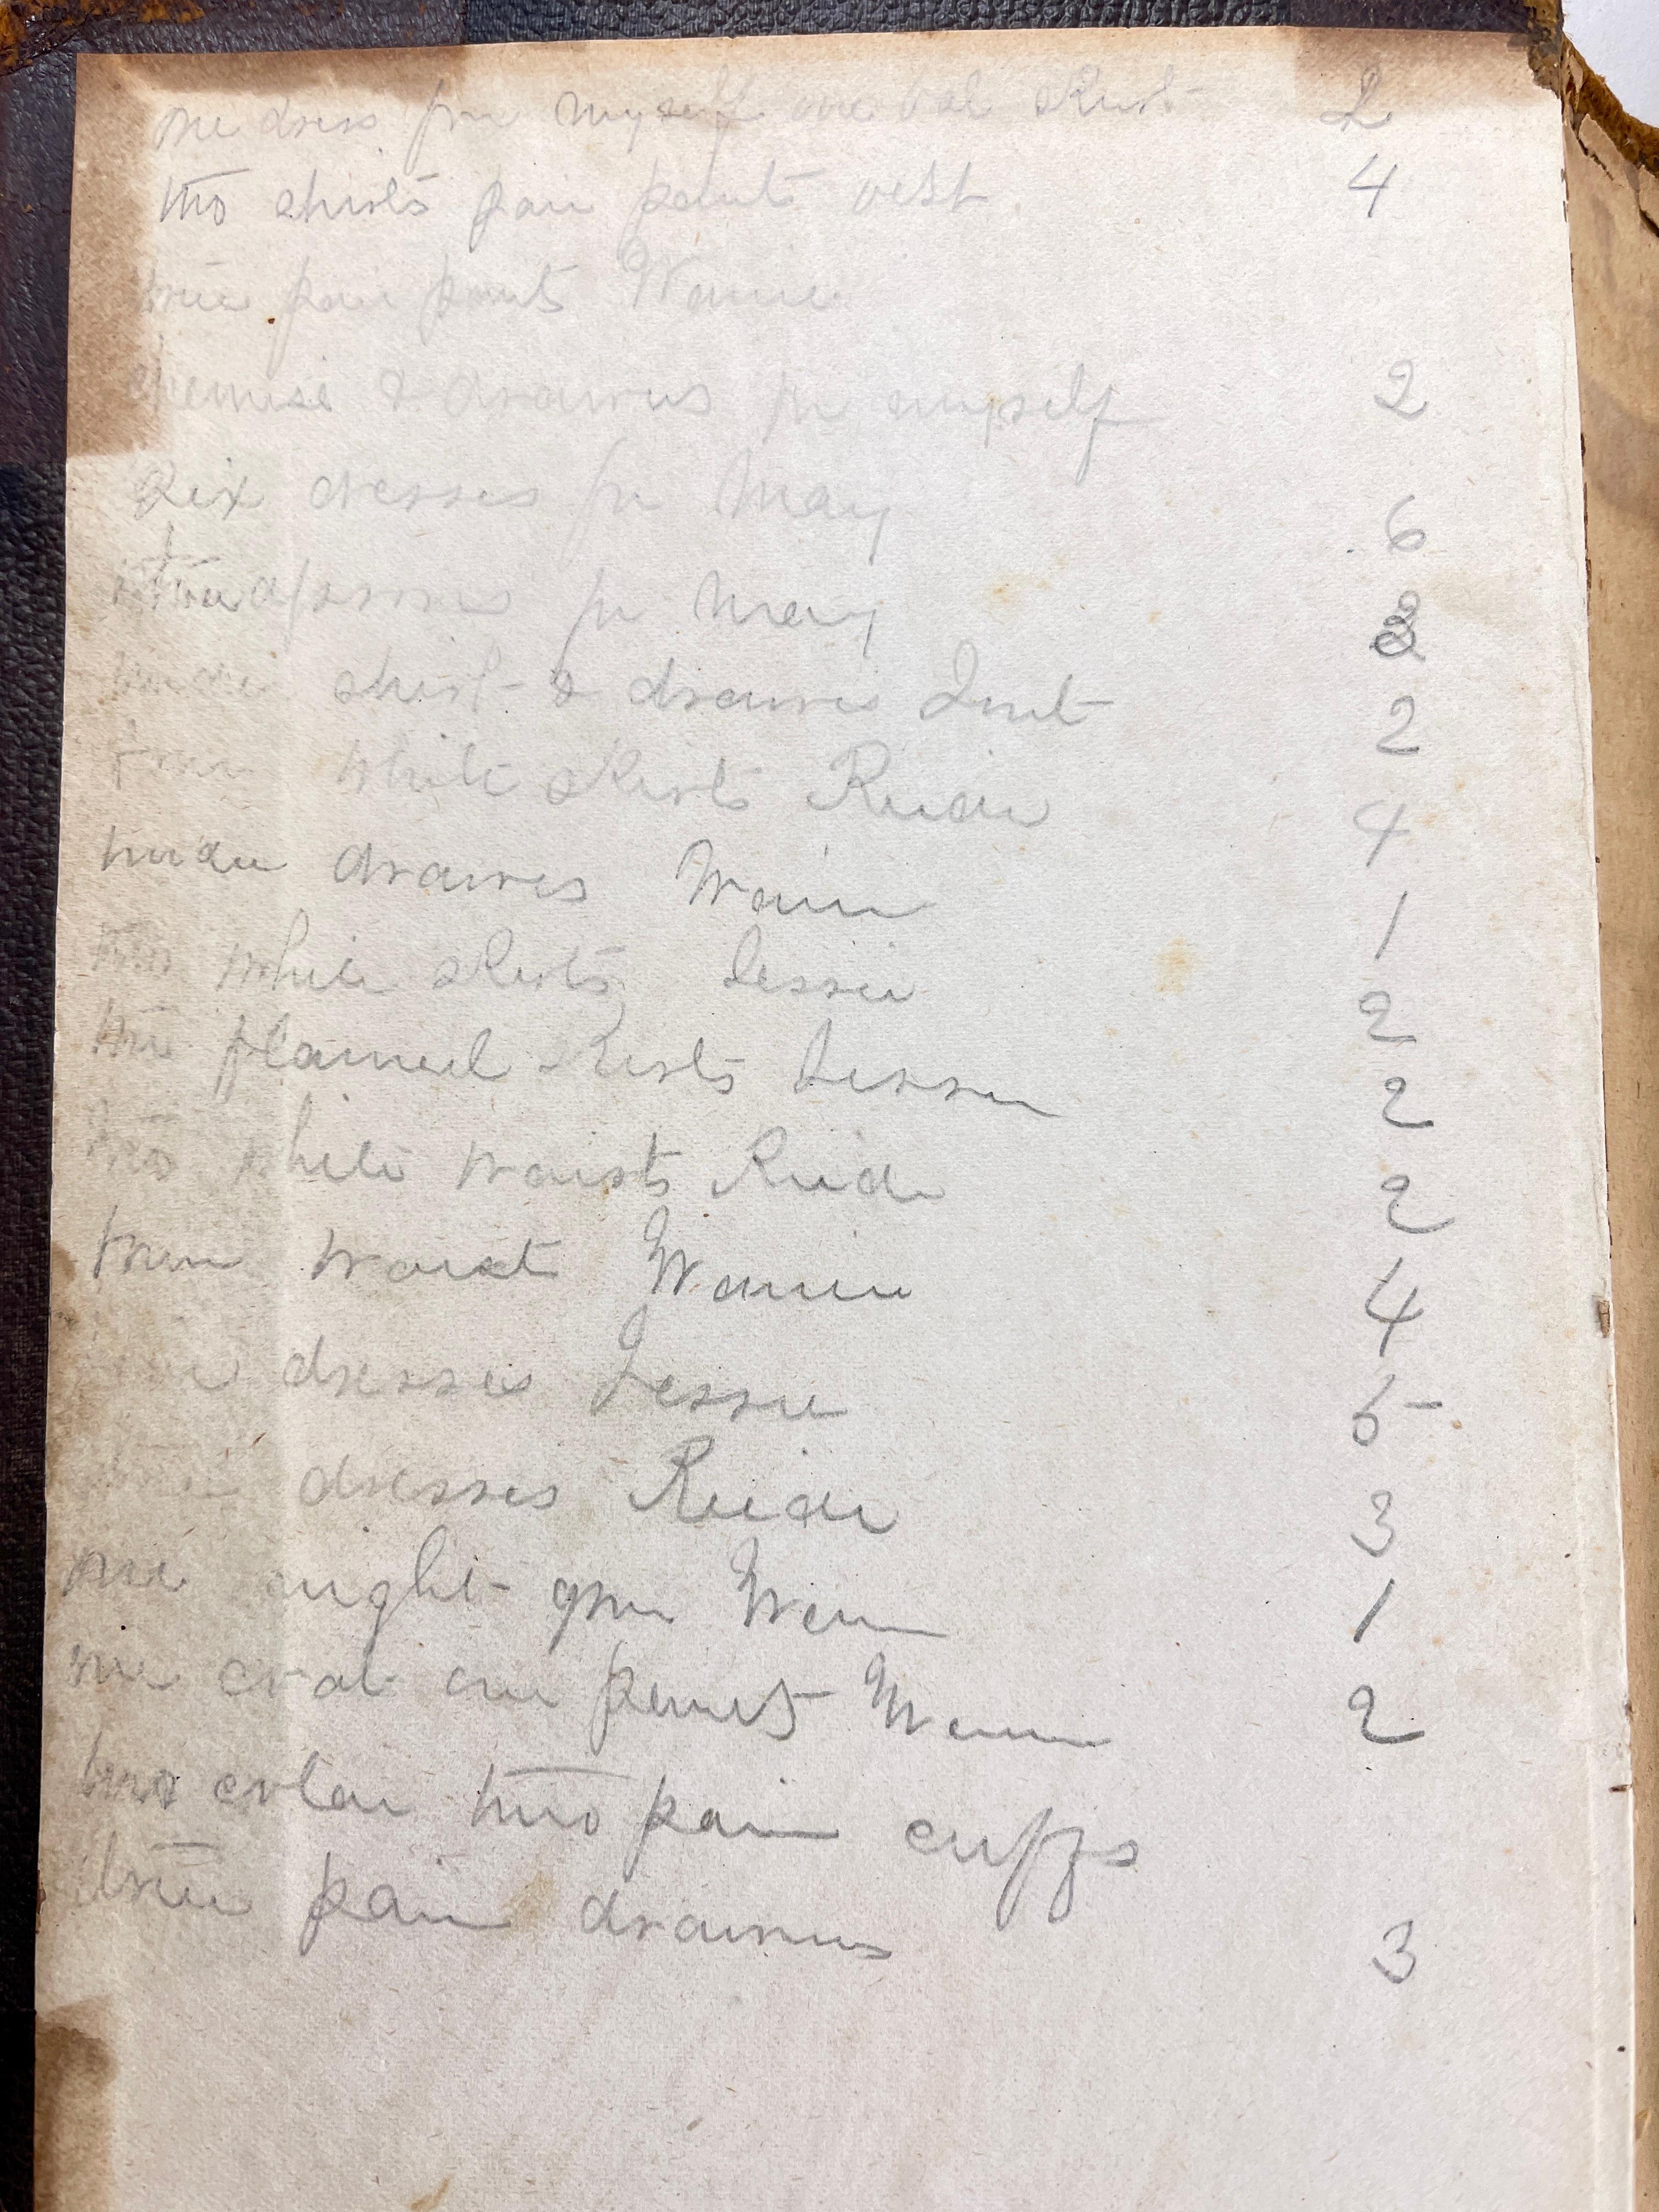 one dress for myself one bal skirt 2
two shirts pair pants vest 4
three pair pants Wannie
chemise & drawrus for myself 2
Six dresses for May 6
three aprons for May 3
under shirt & drawres 2
four white skirts Reide 4
under drawres Wannie 1
two white skirts Jessie 2
two flannel skirts Jessie 2
two white waists Reide 2
four waist Wannie 4
dresses Jessie 5
dresses Reide 3
one night gown Wannie 1
one coat one pants Wannie 2
two colar two pair cuffs
three pair drawrus 3